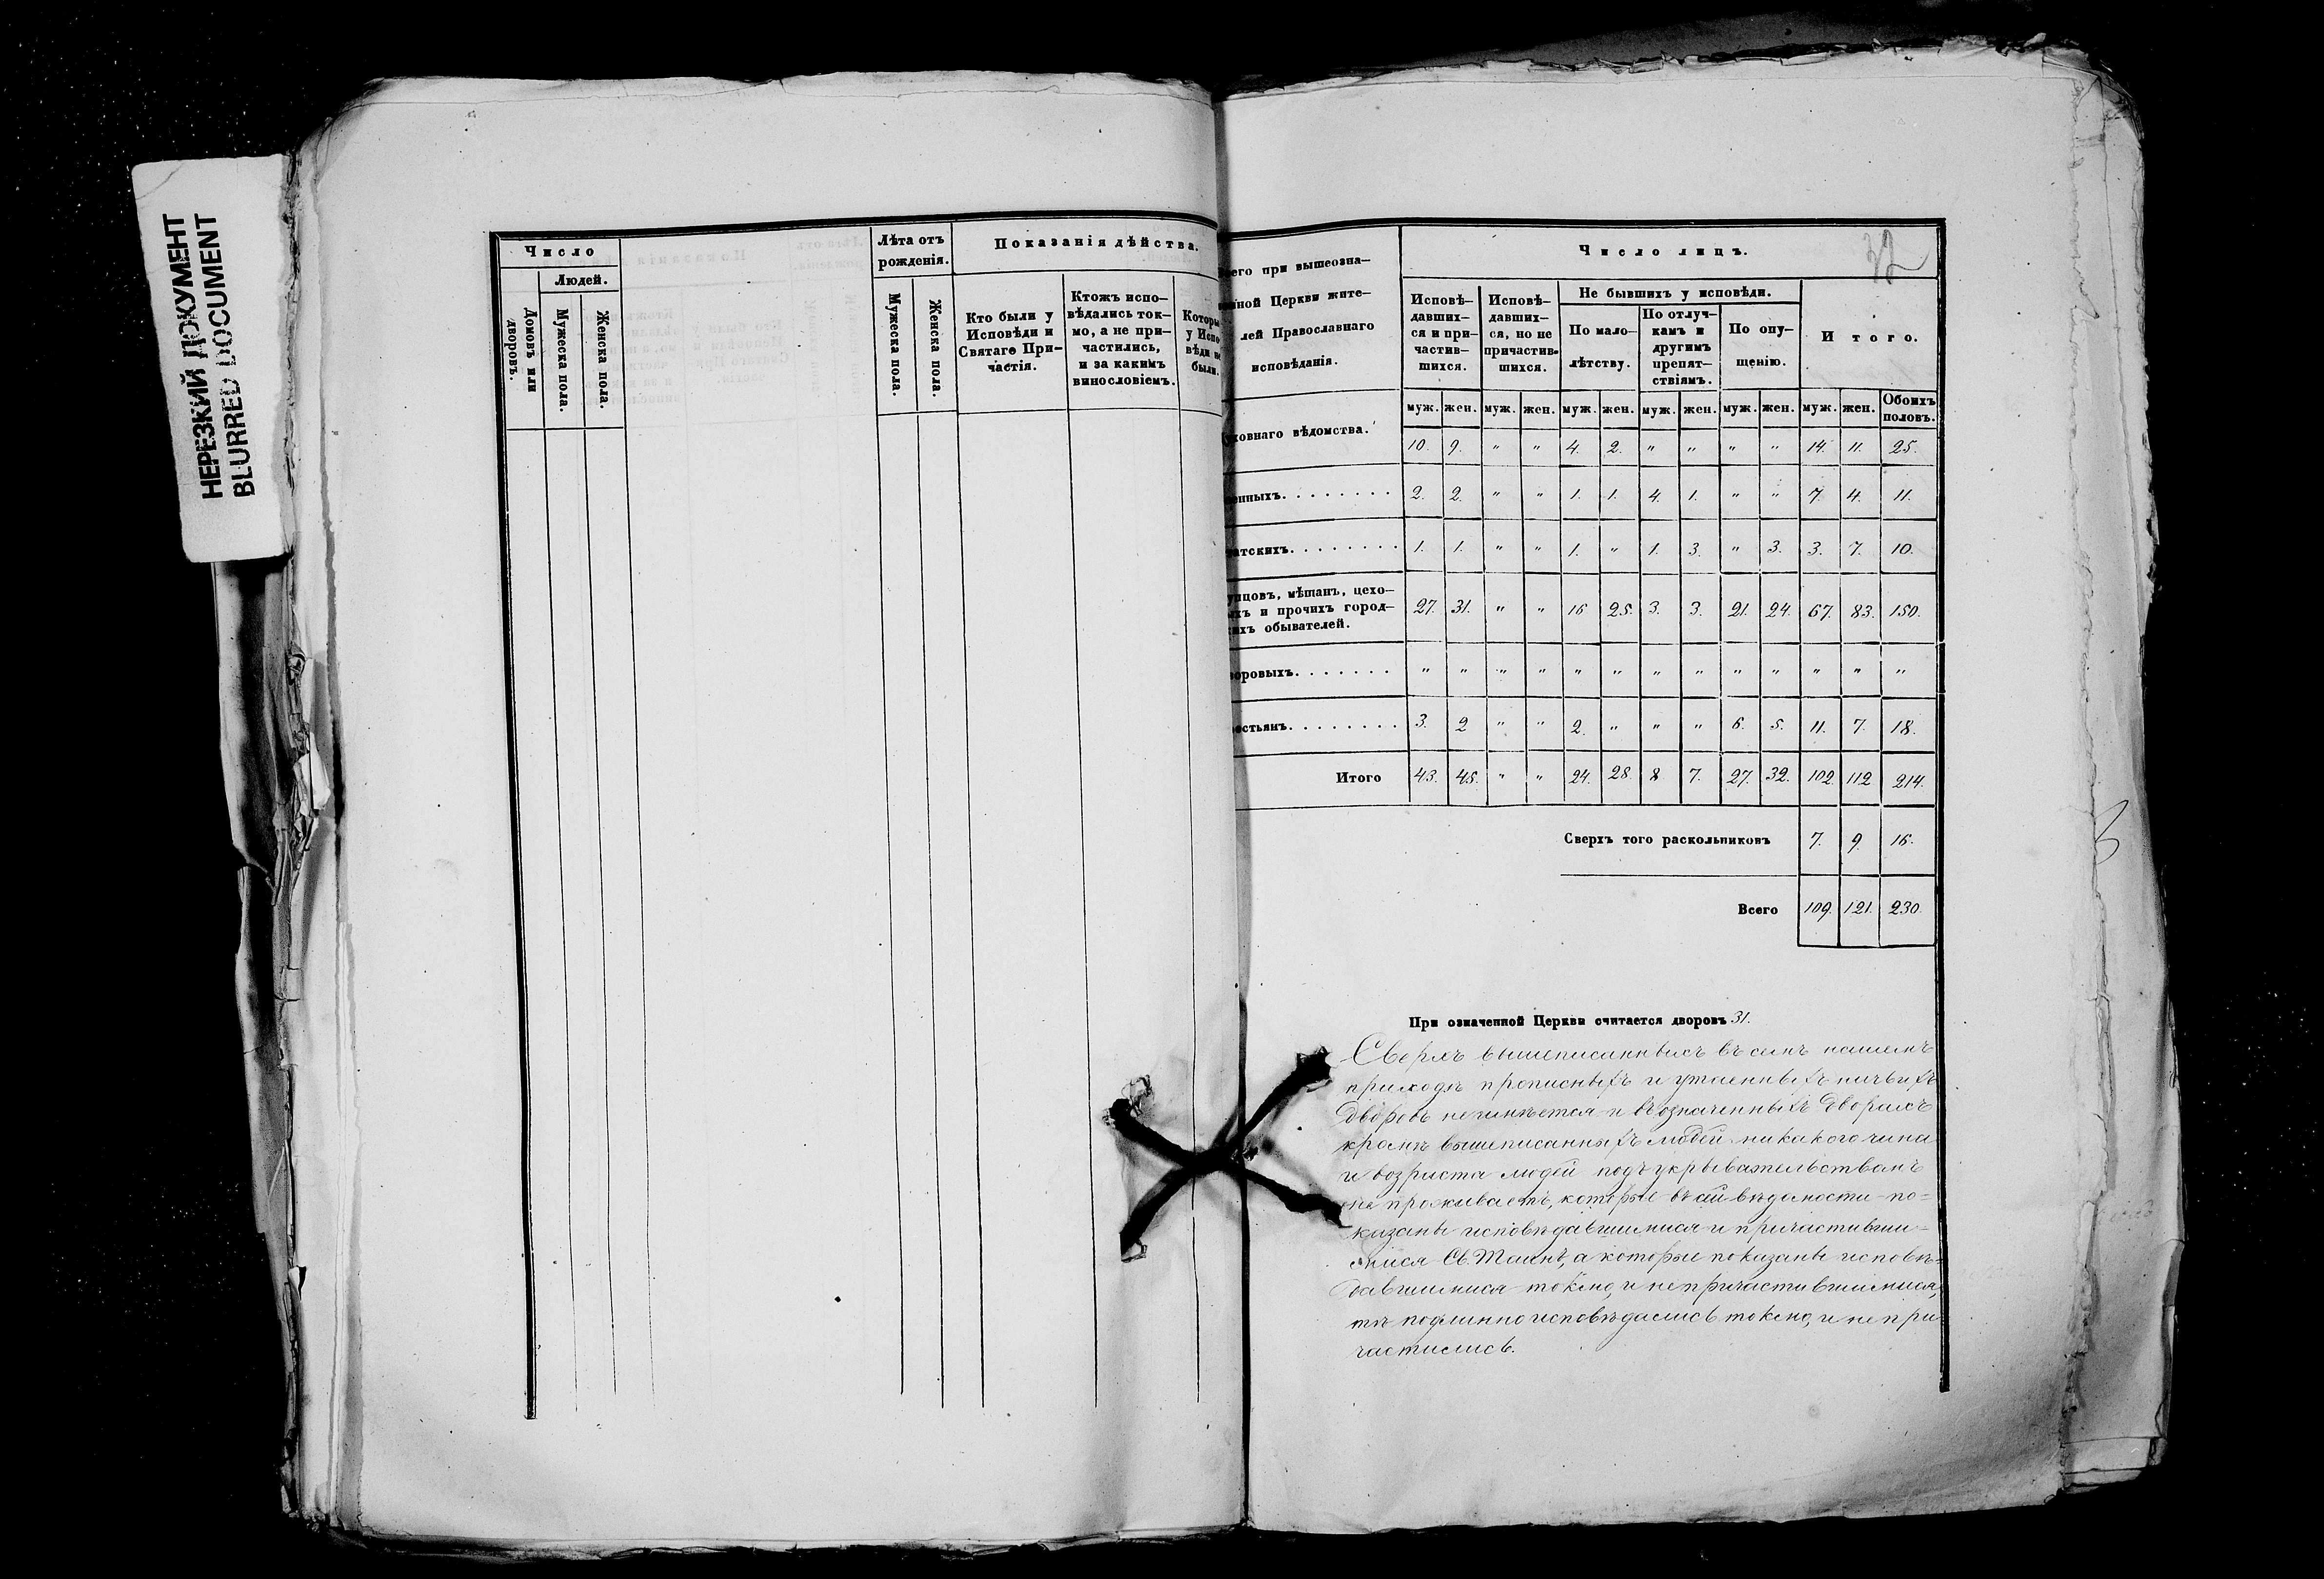 НЕРЕЗКИЙ ДОКУМЕНТ
BLURRED DOCUMENT
Число
Людей.
Домовъ или дворовъ.
Мужеска пола.
Женска пола.
Лѣта отъ
рожденія.
Мужеска пола.
Женска пола.
Показанія дѣйства.
Кто были у
Исповѣди и
Святаго При-
частія.
Ктожъ испо-
вѣдались ток-
мо, а не при-
частились,
и за какимъ
винословіемъ.
Которы
у Испо
вѣди не
были.
32
его при вышеозна-
ной Церкви жите-
лей Православнаго
исповѣданія.
Число лицъ.
Исповѣ-
давших-
ся и при-
частив-
шихся.
Исповѣ-
давших-
ся, но не
причастив-
шихся.
Не бывшихъ у исповѣди.
По мало-
лѣтству.
По отлуч-
камъ и
другимъ
препят-
ствіямъ.
По опу-
щенію.
И того.
муж. жен. муж. жен. муж. жен. муж. жен. муж. жен. муж. жен. Обоихъ половъ.
ховнаго вѣдомства. 10. 9. " " 4. 2. " " " " 14. 11. 25.
енныхъ. . . . . . . . 2. 2. " " 1. 1. 4. 1. " " 7. 4. 11.
атскихъ. . . . . . . . 1. 1. " " 1. " 1. 3. " 3. 3. 7. 10.
упцовъ, мѣщанъ, цехо-
ыхъ и прочихъ город-
ихъ обывателей. 27. 31. " " 16 25. 3. 3. 21. 24. 67. 83. 150.
оровыхъ. . . . . . . " " " " " " " " " " " " "
естьянъ. . . . . . . . 3. 2 " " 2. " " " 6. 5. 11. 7. 18.
Итого 43. 45. " " 24. 28. 8 7. 27. 32. 102. 112 214.
Сверхъ того раскольниковъ 7. 9. 16.
Всего 109. 121. 230.
При означенной Церкви считается дворовъ 31.
Сверхъ вышеписанныхъ въ семъ нашемъ
приходѣ прописныхъ и утаенныхъ ничьихъ
дворовъ неимѣется и въ означенныхъ дворахъ
кромѣ вышеписанныхъ людей никакого чина
и возраста людей подъ укрывательствомъ
не проживаетъ, которые въ сей вѣдомости по=
казаны исповѣдавшимися и причастивши-
мися Св. Таинъ, а которые показаны исповѣ=
давшимися токмо, и не причастившимися,
тѣ подлинно исповѣдались токмо, и не при
частились.